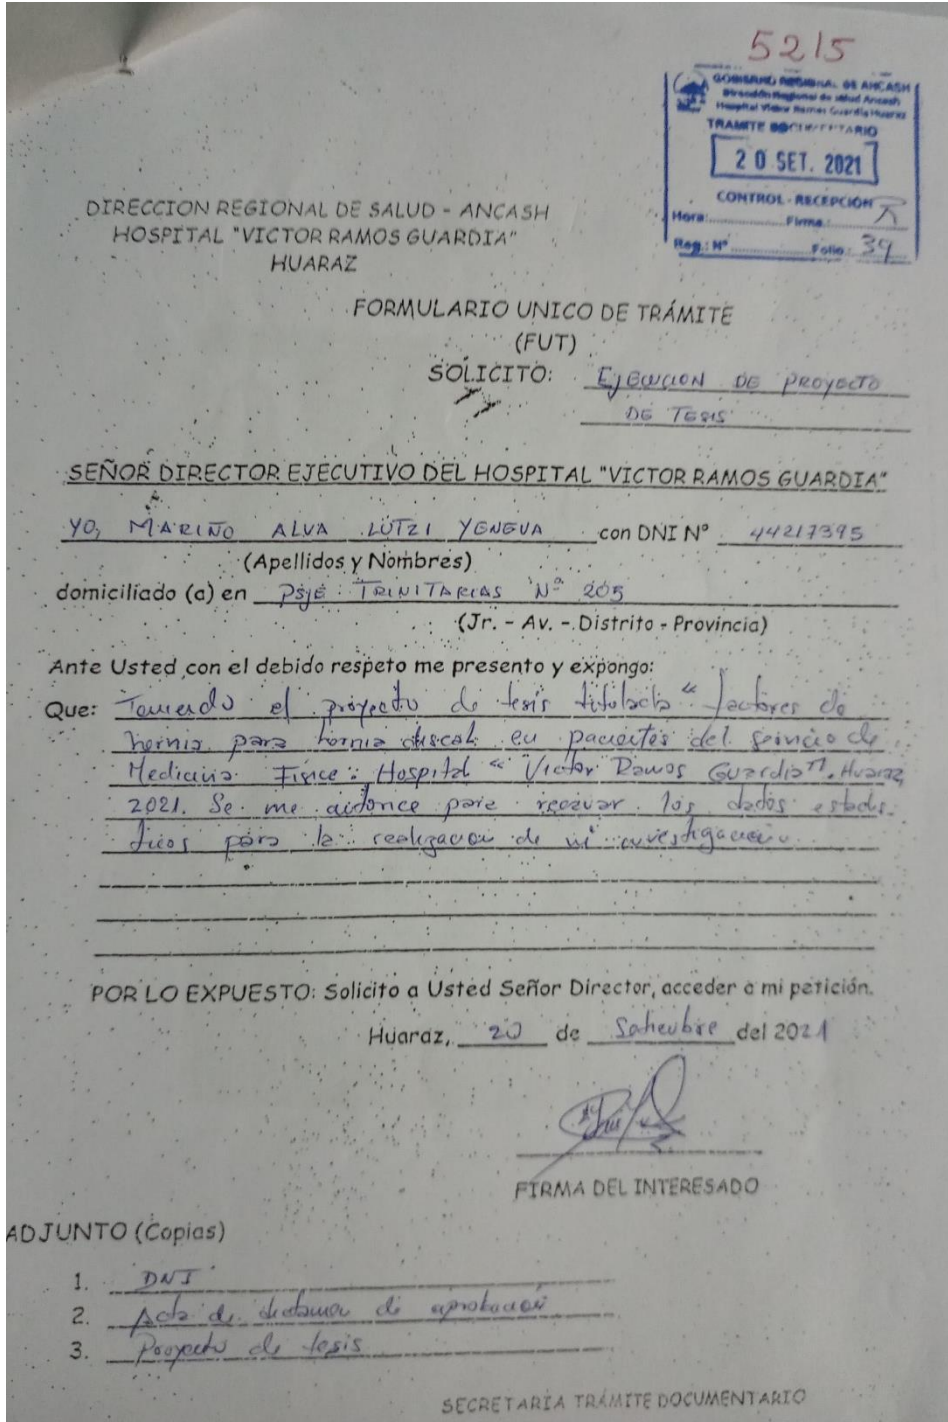 5215
GOBIERNO REGIONAL DE ANCASH
Dirección Regional de Salud Ancash
Hospital Victor Ramos Guardia Huaraz
TRAMITE DOCUMENTARIO
20 SET. 2021
CONTROL - RECEPCIÓN
Hora: Firma:
Reg.: Nº Folio: 39
DIRECCION REGIONAL DE SALUD - ANCASH
HOSPITAL "VICTOR RAMOS GUARDIA"
HUARAZ
FORMULARIO UNICO DE TRÁMITE
(FUT)
SOLICITO: EJECUCION DE PROYECTO
DE TESIS
SEÑOR DIRECTOR EJECUTIVO DEL HOSPITAL "VICTOR RAMOS GUARDIA"
YO, MARIÑO ALVA LUTZI YENGUA con DNI Nº 44217395
(Apellidos y Nombres)
domiciliado (a) en PSJE TRINITARIAS Nº 205
(Jr. - Av. - Distrito - Provincia)
Ante Usted con el debido respeto me presento y expongo:
Que: Teniendo el proyecto de tesis titulada "factores de
hernia para hernia discal en pacientes del servicio de
Medicina Física: Hospital "Victor Ramos Guardia". Huaraz,
2021. Se me autorice para los dados estadís-
ticos para la realización de mi investigación
POR LO EXPUESTO: Solicito a Usted Señor Director, acceder a mi petición.
Huaraz, 20 de Setiembre del 2021
FIRMA DEL INTERESADO
ADJUNTO (Copias)
1. DNI
2. Acta de dictamen de aprobación
3. Proyecto de tesis
SECRETARIA TRÁMITE DOCUMENTARIO